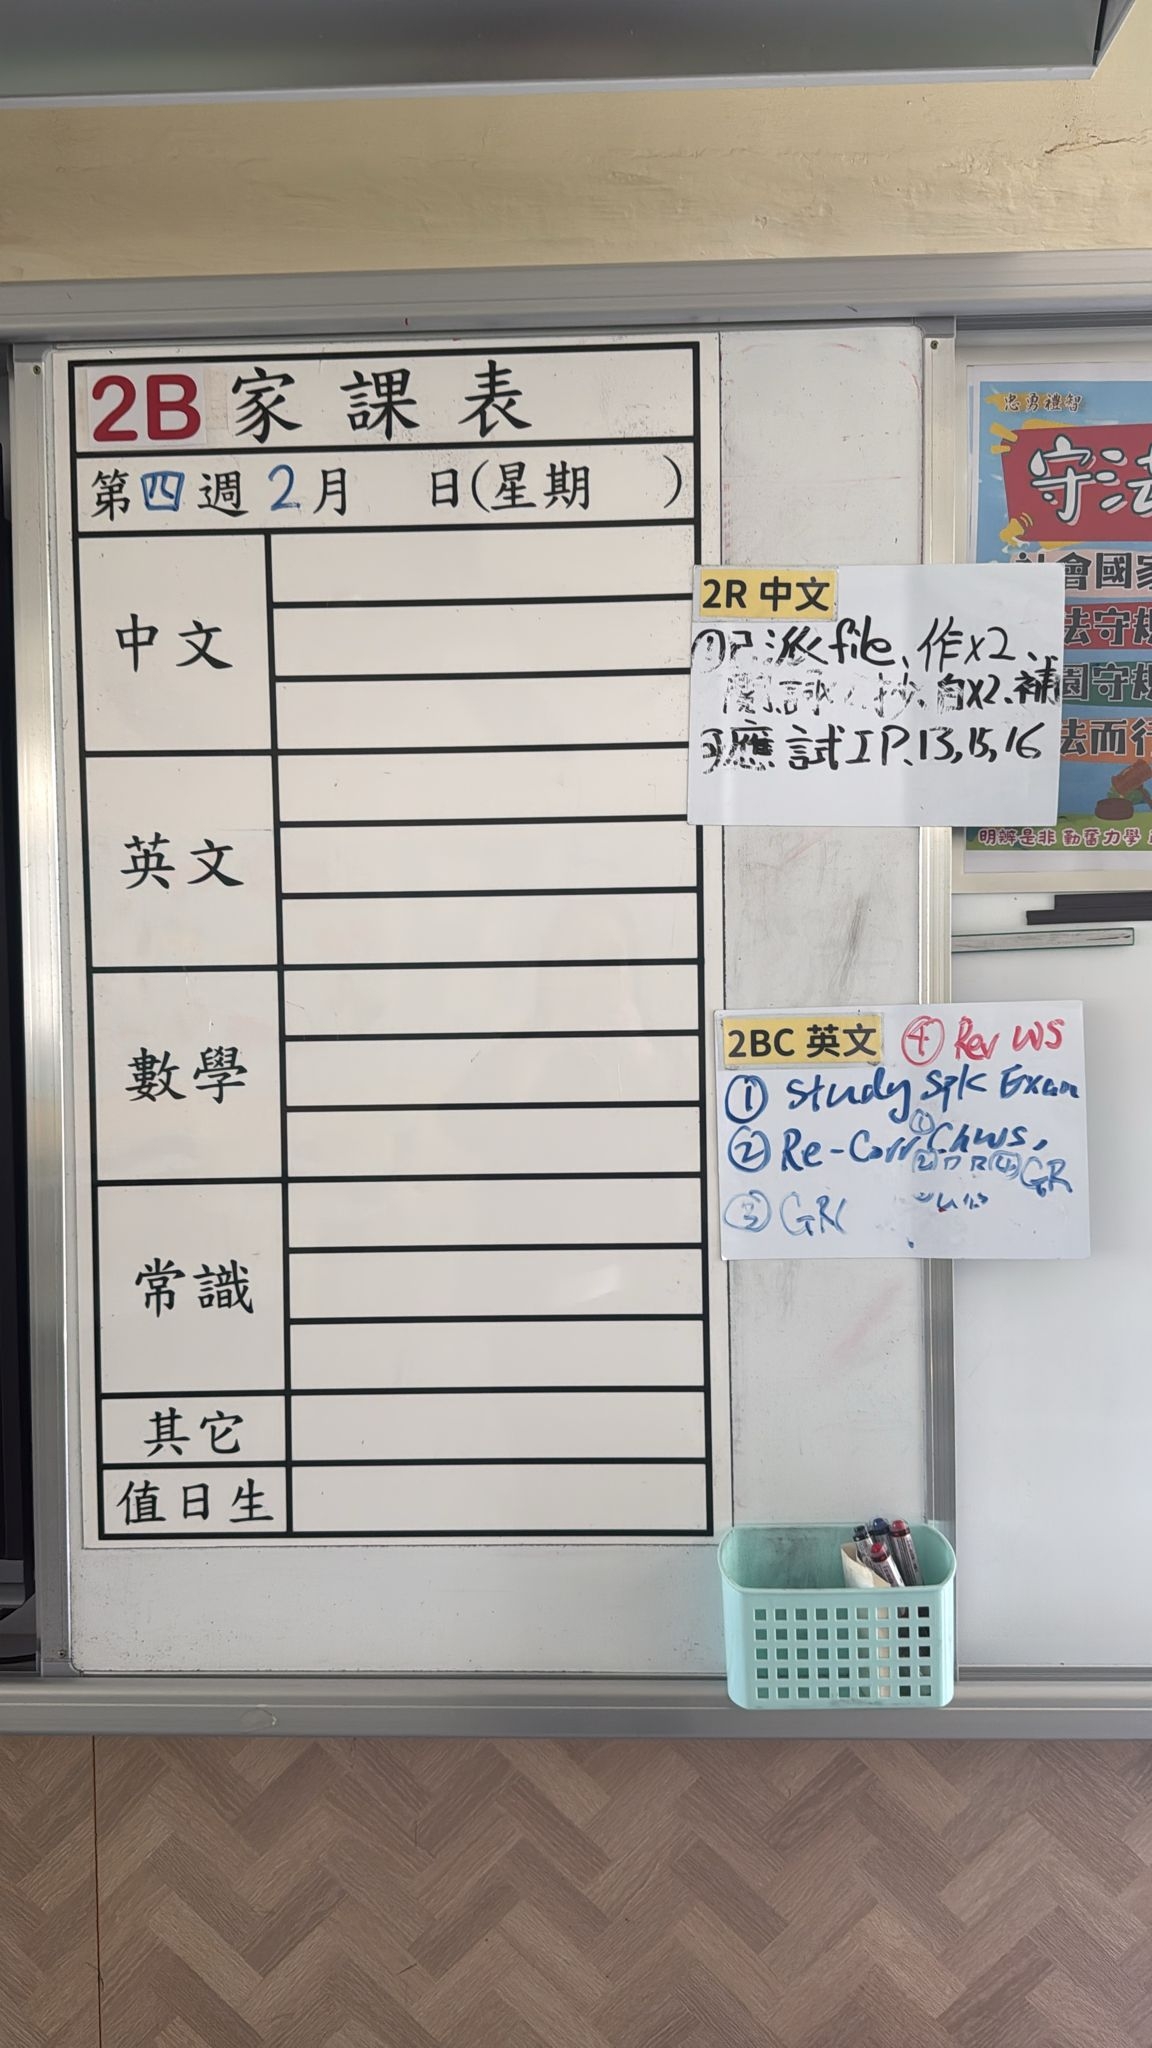 2B 家課表
第四週 2月 日(星期 )
中文
英文
數學
常識
其它
值日生
2R 中文
①已派file、作x2、
自x2、補
應試IP.13,15,16
2BC 英文 ④ Rev WS
① Study Spk Exam
② Re-Corr ① Ch WS,
② ④ GR
③ GR
忠勇禮智
守法
社會國家
法守規
園守規
法而行
明辨是非 勤奮力學